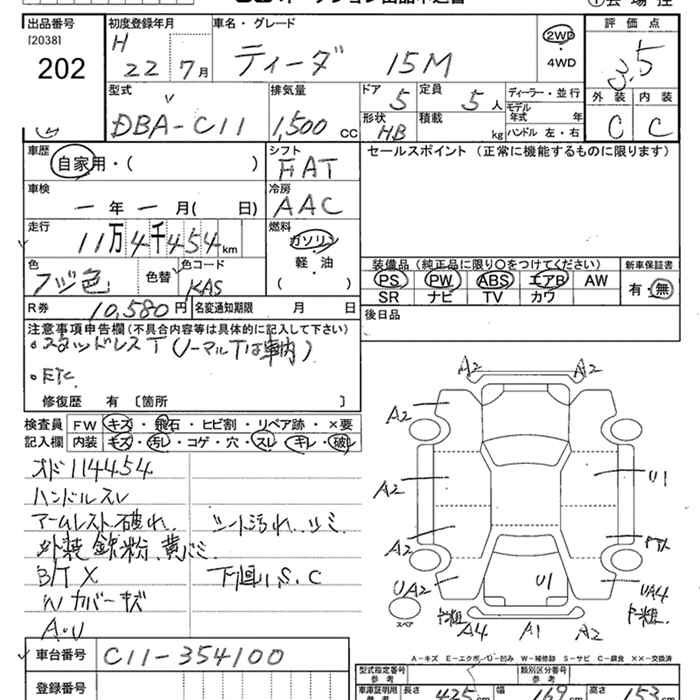 出品番号 初度登録年月 車名・グレード 評価点
[2038]
202
H 22 7月 ティーダ 15M 2WD・4WD 3.5
型式 排気量 ドア 5 定員 5人 ディーラー・並行 外装 内装
DBA-C11 1,500cc 形状 HB 積載 kg モデル年式 年 ハンドル 左・右 C C
車歴 シフト セールスポイント (正常に機能するものに限ります)
自家用・( ) FAT
車検 冷房
ー年ー月( 日) AAC
走行 燃料
11万4千454km ガソリン
軽・油
( )
色 色替 色コード
フジ色 KAS
装備品 (純正品に限り○をつけてください) 新車保証書
PS PW ABS エアB AW 有・無
SR ナビ TV カワ
R券 10,580円 名変通知期限 月 日 後日品
注意事項申告欄(不具合内容等は具体的に記入して下さい)
・スタッドレスT(ノーマルTは車内)
・ETC
修復歴 有 〔箇所 〕
検査員記入欄 FW キズ・飛石・ヒビ割・リペア跡・×要
内装 キズ・汚レ・コゲ・穴・スレ・キレ・破レ
オド114454
ハンドルスレ
アームレスト破れ シート汚れ、シミ
外装 鉄粉、黄バミ
B/T X 下廻り、S、C
Wカバーキズ
A・U
A2 A2
A2
A2 U1
A2
UA2 U1 UA4
スペア A4 A1 A2
A-キズ E-エクボ U-凹み W-補修跡 S-サビ C-腐食 ××-交換済
車台番号 C11-354100
登録番号
型式指定番号 参考 類別区分番号 参考
車庫証明用 参考 長さ 425cm 幅 169cm 高さ 153cm